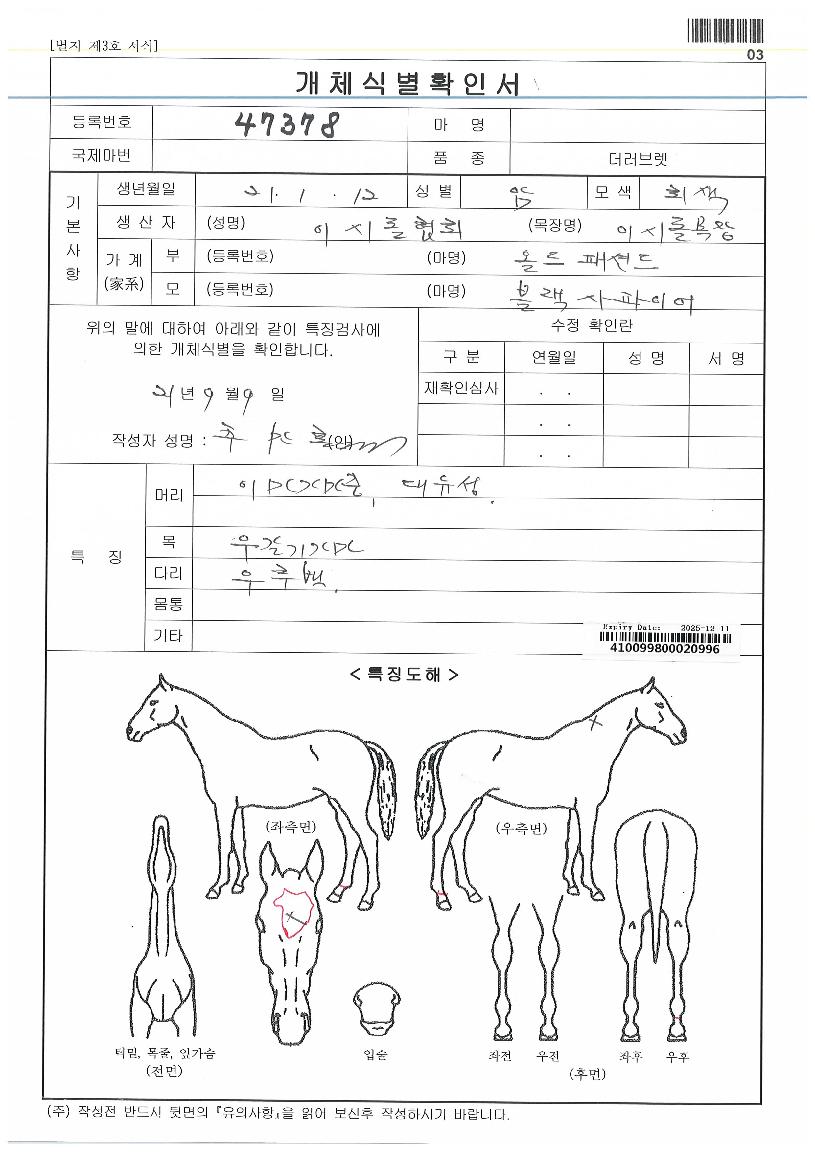 [별지 제3호 서식]
03
개체식별확인서
등록번호 47378 마 명
국제마번 품 종 더러브렛
기본사항
생년월일 21. 1. 12 성 별 암 모 색 회색
생 산 자 (성명) 이시돌협회 (목장명) 이시돌목장
가 계 (家系) 부 (등록번호) (마명) 올드 패션드
모 (등록번호) (마명) 블랙사파이어
위의 말에 대하여 아래와 같이 특징검사에
의한 개체식별을 확인합니다.
21년 9월 9일
작성자 성명 : (인)
수정 확인란
구 분 연월일 성 명 서 명
재확인심사 . .
. .
. .
특 징
머리 대유성.
목
다리
몸통
기타
Expiry Date: 2025-12-11
410099800020996
< 특징도해 >
(좌측면) (우측면)
턱밑, 목줄, 앞가슴
(전면)
입술
좌전 우전 좌후 우후
(후면)
(주) 작성전 반드시 뒷면의 『유의사항』을 읽어 보신후 작성하시기 바랍니다.